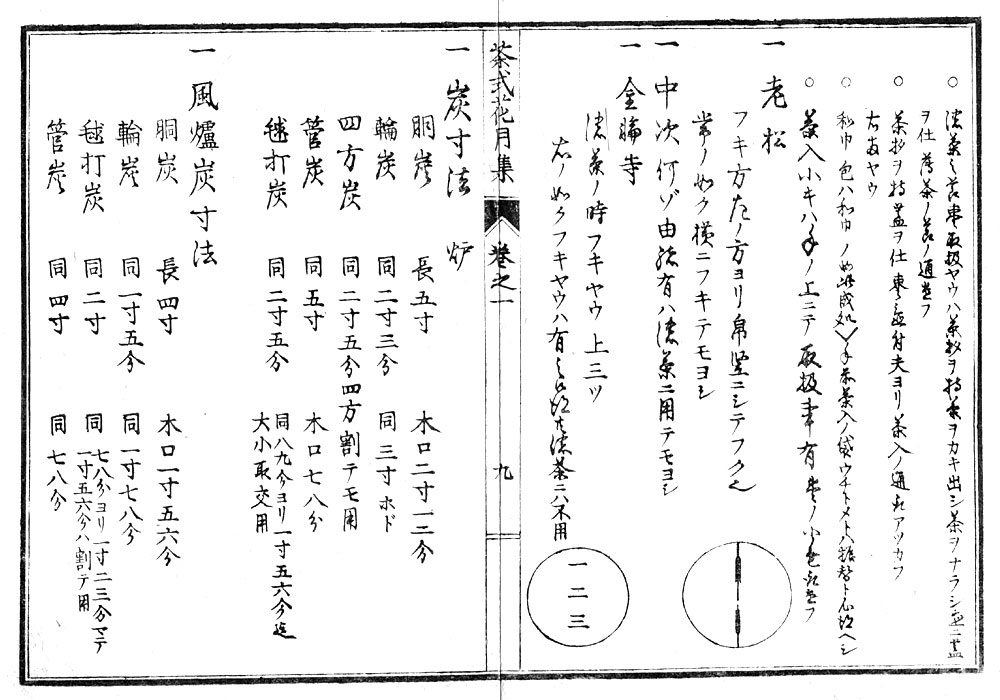 ○ 濃茶之節事取扱ヤウハ茶杓ヲ持茶ヲカキ出シ茶ヲナラシ直ニ蓋
ヲ仕薄茶ノ節ノ通也
○ 茶杓ヲ持蓋ヲ仕棗之置付夫ヨリ茶入ノ通ニアツカフ
○ 茶入小キハ手ノ上ニテ取扱事有
一 老松
フキ方左ノ方ヨリ帛竪ニシテフク
常ノ如ク横ニフキテモヨシ
一 中次何ゾ由緒有ハ濃茶ニ用テモヨシ
一 金輪寺
濃茶ノ時フキヤウ上三ツ
右ノ如クフキヤウハ有之候得共濃茶ニハ不用
一 二 三
茶式花月集 巻之一 九
一 炭寸法 炉
胴炭 長五寸 木口二寸一二分
輪炭 同二寸三分 同三寸ホド
四方炭 同二寸五分四方割テモ用
管炭 同五寸 木口七八分
毬打炭 同二寸五分 同八九分ヨリ一寸五六分迄
大小取交用
一 風爐炭寸法
胴炭 長四寸 木口一寸五六分
輪炭 同一寸五分 同一寸七八分
毬打炭 同二寸 同七八分ヨリ一寸二三分マテ
一寸五六分ハ割テ用
管炭 同四寸 同七八分